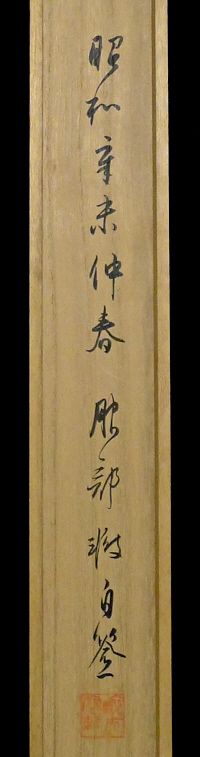 昭和辛未仲春 服部轍自簽